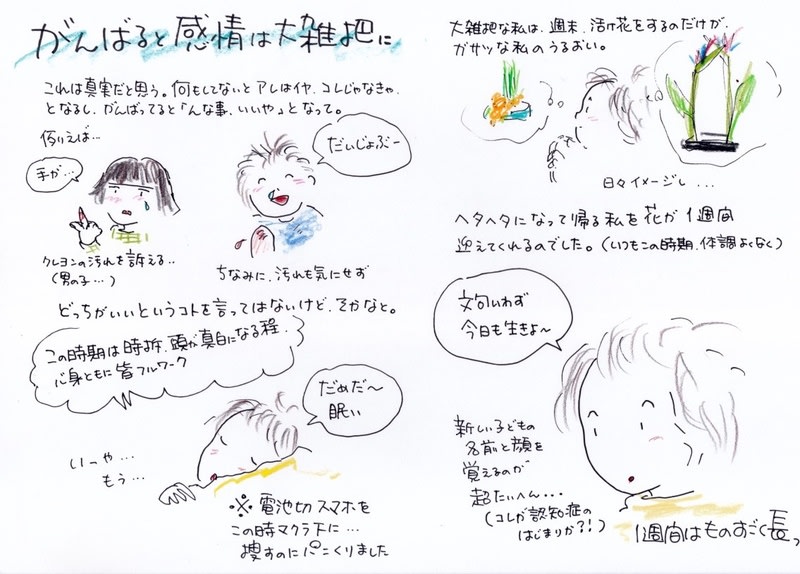 がんばると感情は大雑把に
これは真実だと思う。何もしてないとアレはイヤ、コレじゃなきゃ、
となるし、がんばってると「んな事、いいや」となって。
例えば…
手が…
クレヨンの汚れを訴える…
（男の子…）
だいじょぶー
ちなみに、汚れも気にせず
どっちがいいというコトを言ってはないけど、そかなと。
この時期は時折、頭が真白になる程、
心身ともに皆フルワーク
だめだ〜
眠い
いーや…
もう…
※ 電池切スマホを
この時マクラ下に…
捜すのにパニくりました
大雑把な私は、週末、活け花をするのだけが、
ガサツな私のうるおい。
日々イメージし…
ヘタヘタになって帰る私を花が1週間
迎えてくれるのでした。（いつもこの時期、体調よくなく）
文句いわず
今日も生きよ〜
新しい子どもの
名前と顔を
覚えるのが
超たいへん…
（コレが認知症の
はじまりか?!）
1週間はものすごく長っ